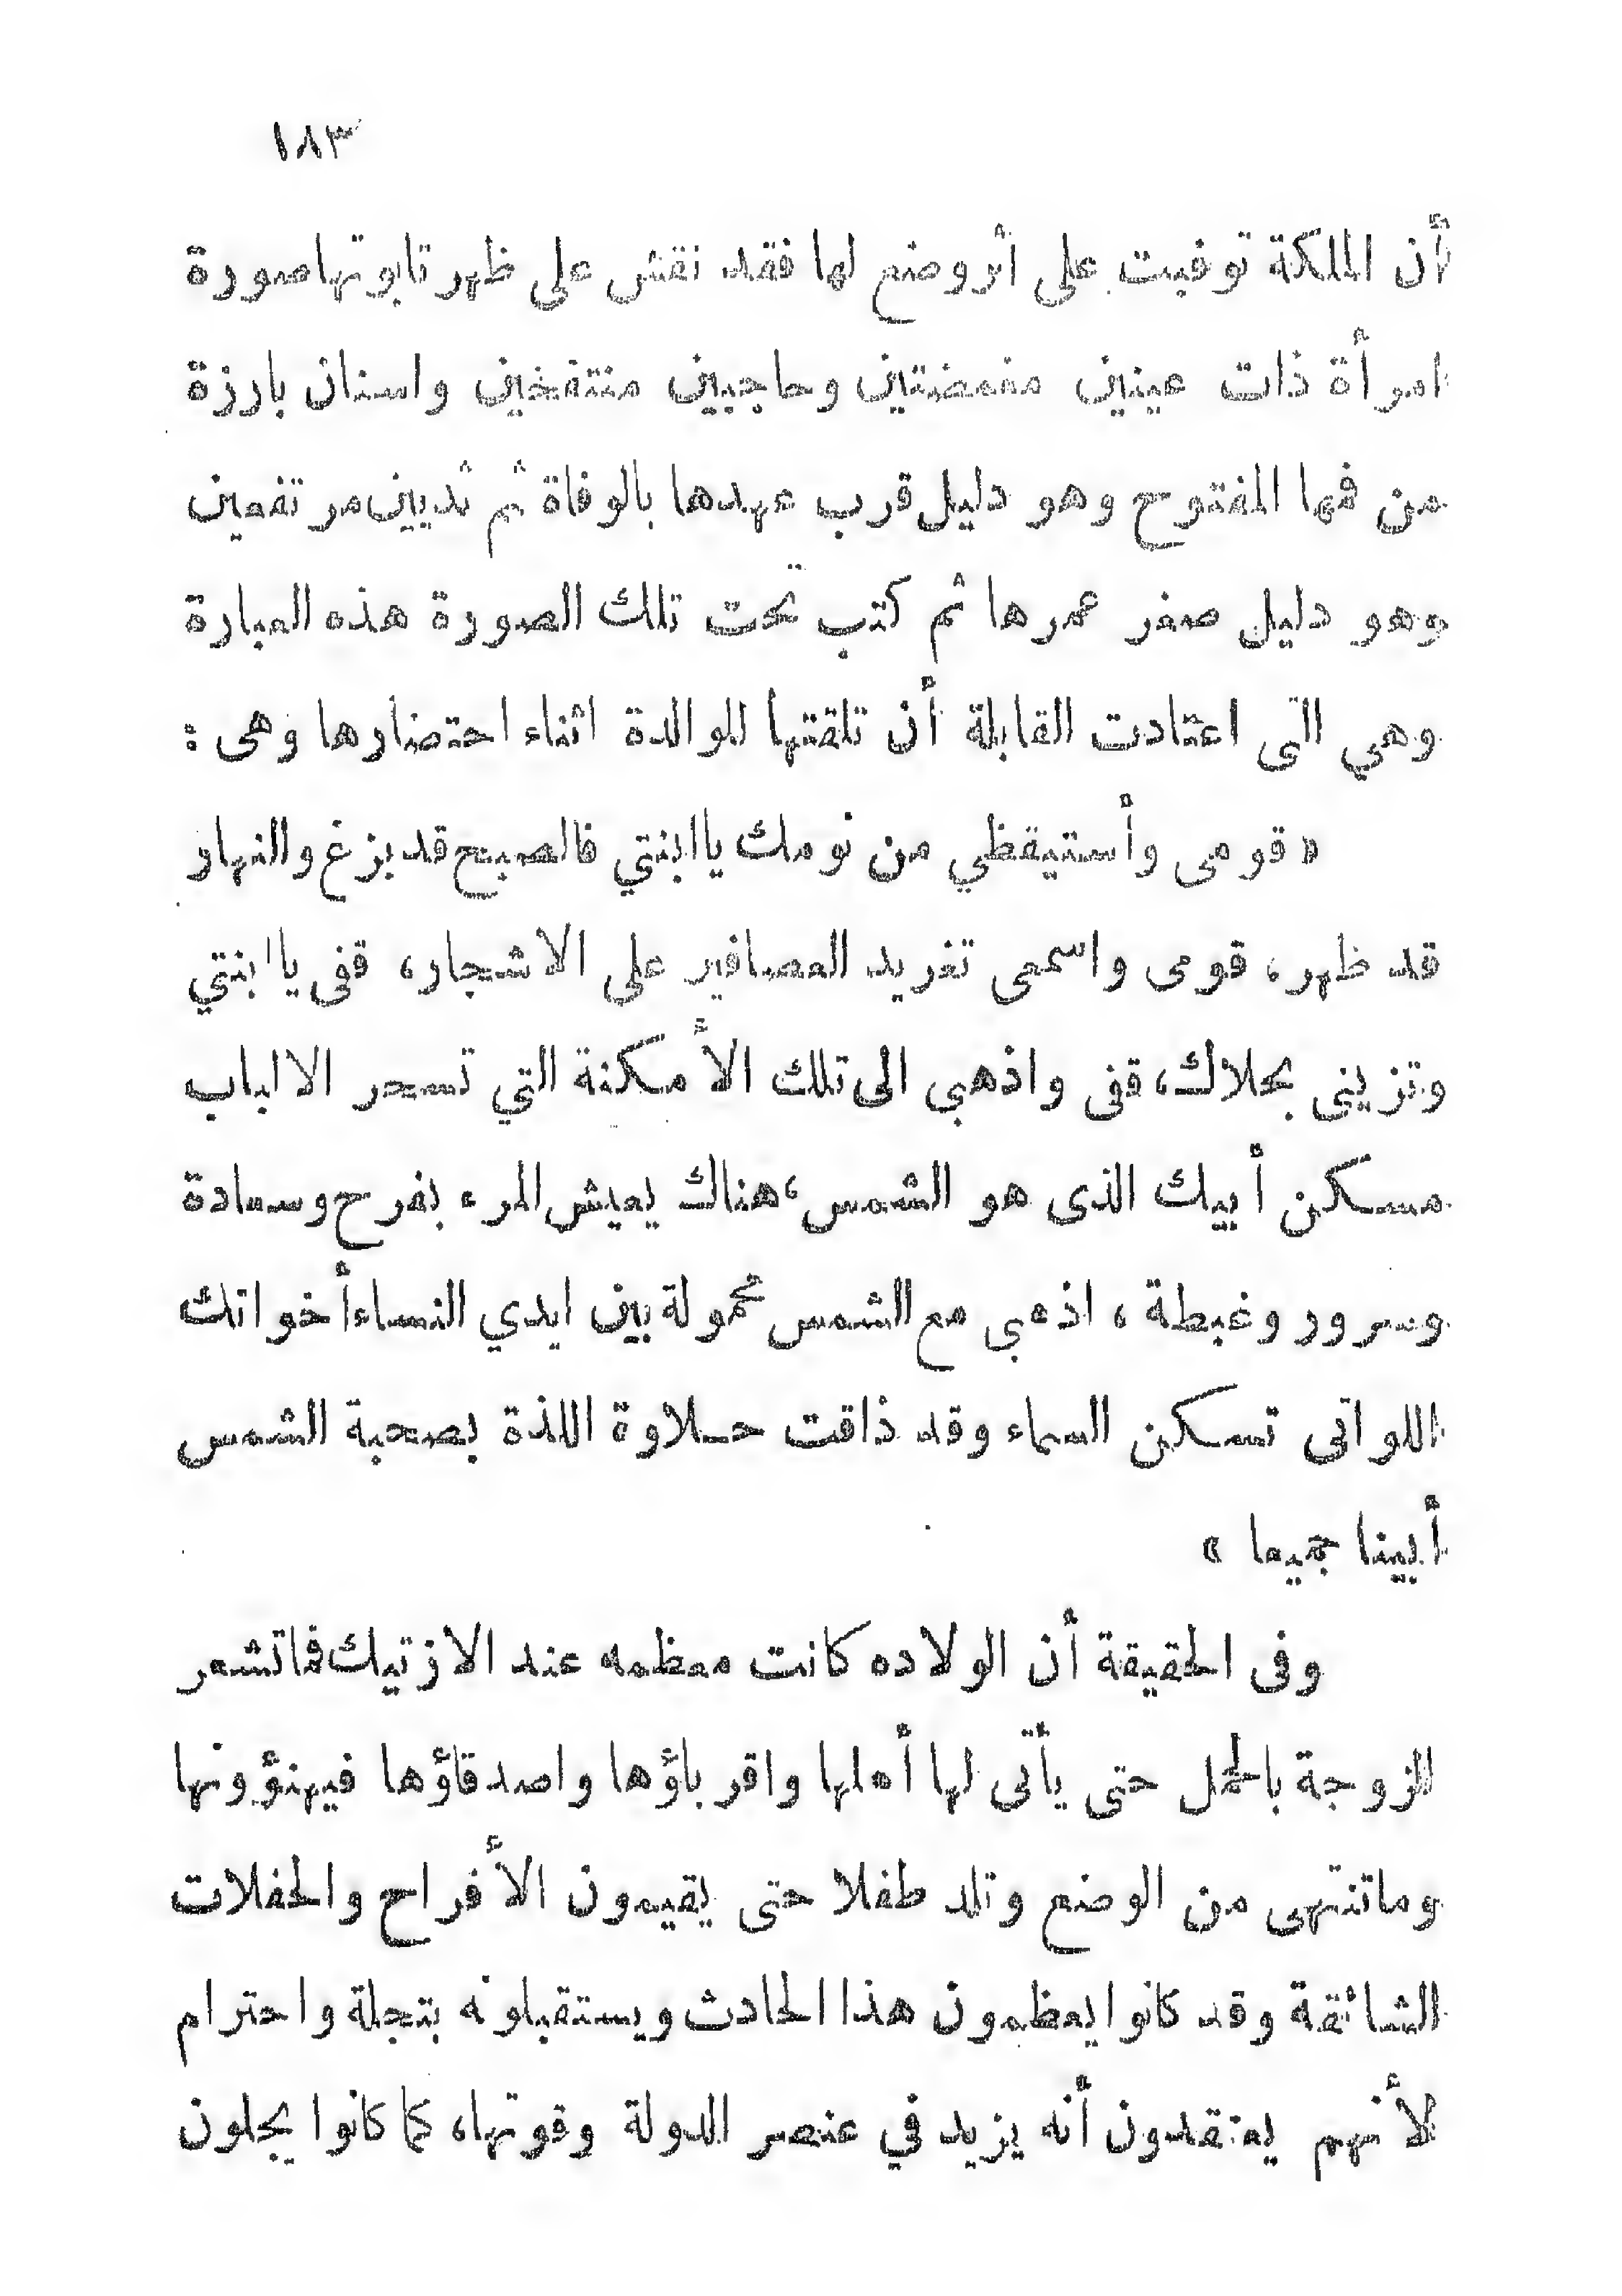 ١٨٣
أن الملكة توفيت على أثر وضع لها فقد نقش على ظهر تابوتها صورة
امرأة ذات عينين مغمضتين وحاجبين منتفخين واسنان بارزة
من فمها المفتوح وهو دليل قرب عهدها بالوفاة ثم ثديين مرتفعين
وهو دليل صغر عمرها ثم كتب تحت تلك الصورة هذه العبارة
وهي التى اعتادت القابلة أن تلقتها للوالدة اثناء احتضارها وهى :
« قومى وأستيقظي من نومك ياابنتي فالصبح قد بزغ والنهار
قد ظهر، قومى واسمعى تغريد العصافير على الاشجار، قفى يا ابنتي
وتزينى بحلاك، قفى واذهبي الى تلك الأمكنة التي تسحر الالباب
مسكن أبيك الذى هو الشمس، هناك يعيش المرء بفرح وسعادة
وسرور وغبطة ، اذهبى مع الشمس محمولة بين ايدي النساء أخواتك
اللواتى تسكن السماء وقد ذاقت حلاوة اللذة بصحبة الشمس
أبينا جميعا »
وفى الحقيقة أن الولاده كانت معظمه عند الازتيك فما تشعر
الزوجة بالحمل حتى يأتى لها أهلها واقرباؤها واصدقاؤها فيهنؤونها
وما تنتهى من الوضع وتلد طفلا حتى يقيمون الأفراح والحفلات
الشائقة وقد كانوا يعظمون هذا الحادث ويستقبلونه بتجلة واحترام
لأنهم يعتقدون أنه يزيد في عنصر الدولة وقوتها، كما كانوا يجلون